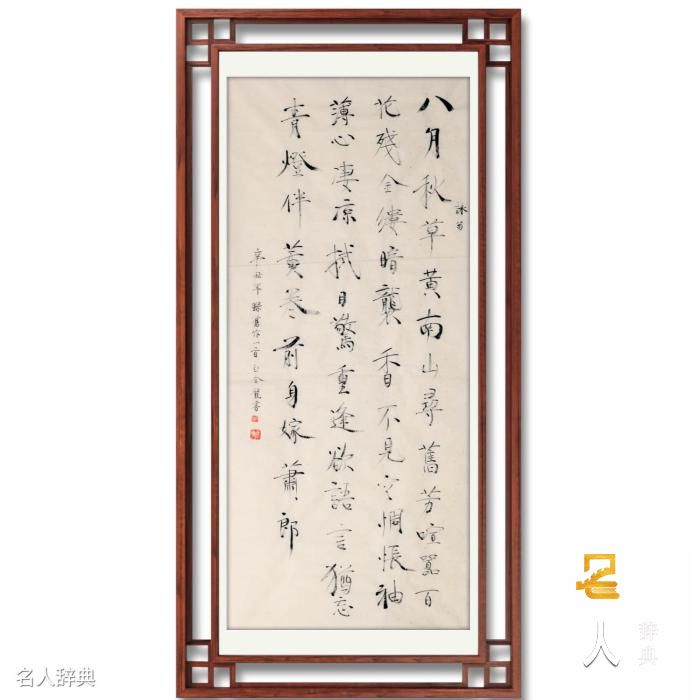 八月秋草黄南山尋舊芳喧囂百
詠菊
花殘金縷暗襲香不見空惆悵袖
薄心凄凉拭目驚重逢欲語言猶忘
青燈伴黄卷前身嫁蕭郎
辛丑年錄舊作一首
名人辞典
名人辞典